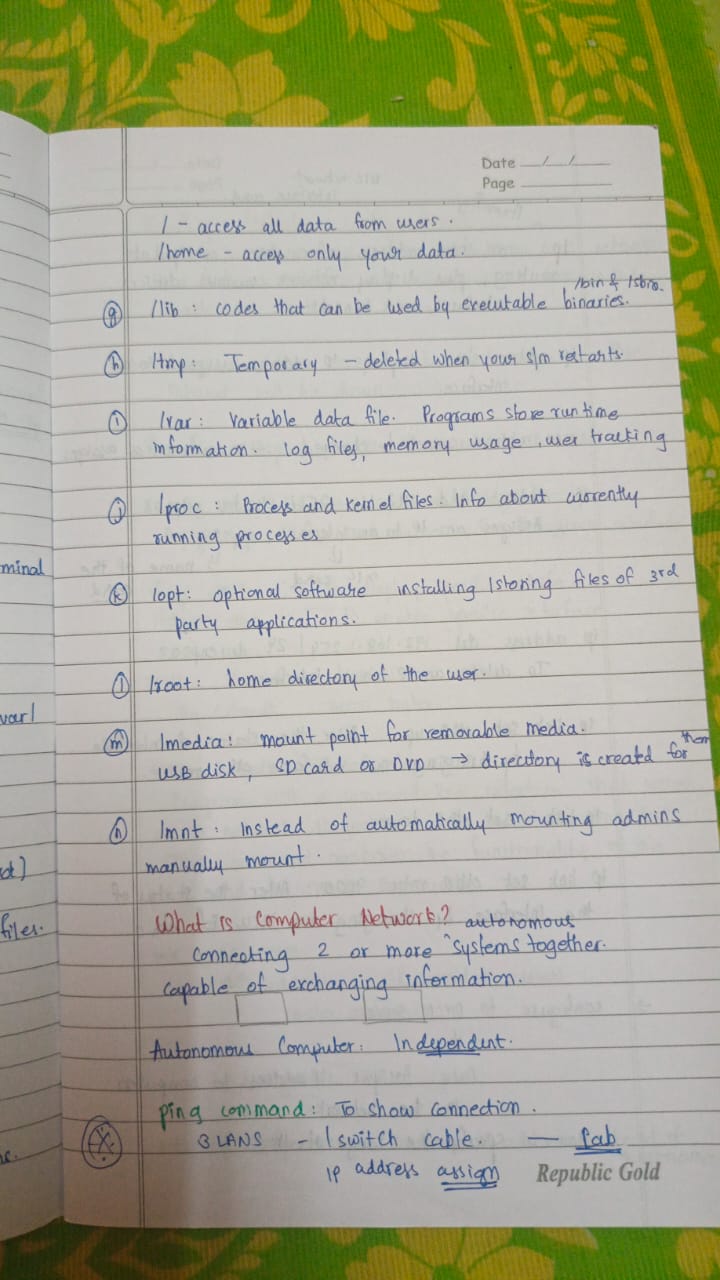 Date __/__/____
Page ________
/ - access all data from users.
/home - access only your data.
/bin & /sbin.
(g) /lib : codes that can be used by executable binaries.
(h) /tmp : Temporary - deleted when your s/m restarts.
(i) /var : Variable data file. Programs store run time
information. log files, memory usage, user tracking
(j) /proc : Process and kernel files. Info about currently
running processes
(k) /opt : optional software installing /storing files of 3rd
party applications.
(l) /root : home directory of the user.
(m) /media : mount point for removable media.
USB disk, SD card or DVD → directory is created for them
(n) /mnt : instead of automatically mounting admins
manually mount.
What is Computer Network?
connecting 2 or more autonomous systems together.
capable of exchanging information.
Autonomous Computer : Independent.
Ping command : To show connection.
3 LANS - 1 switch cable. — Lab
IP address assign
Republic Gold
minal
var/
files.